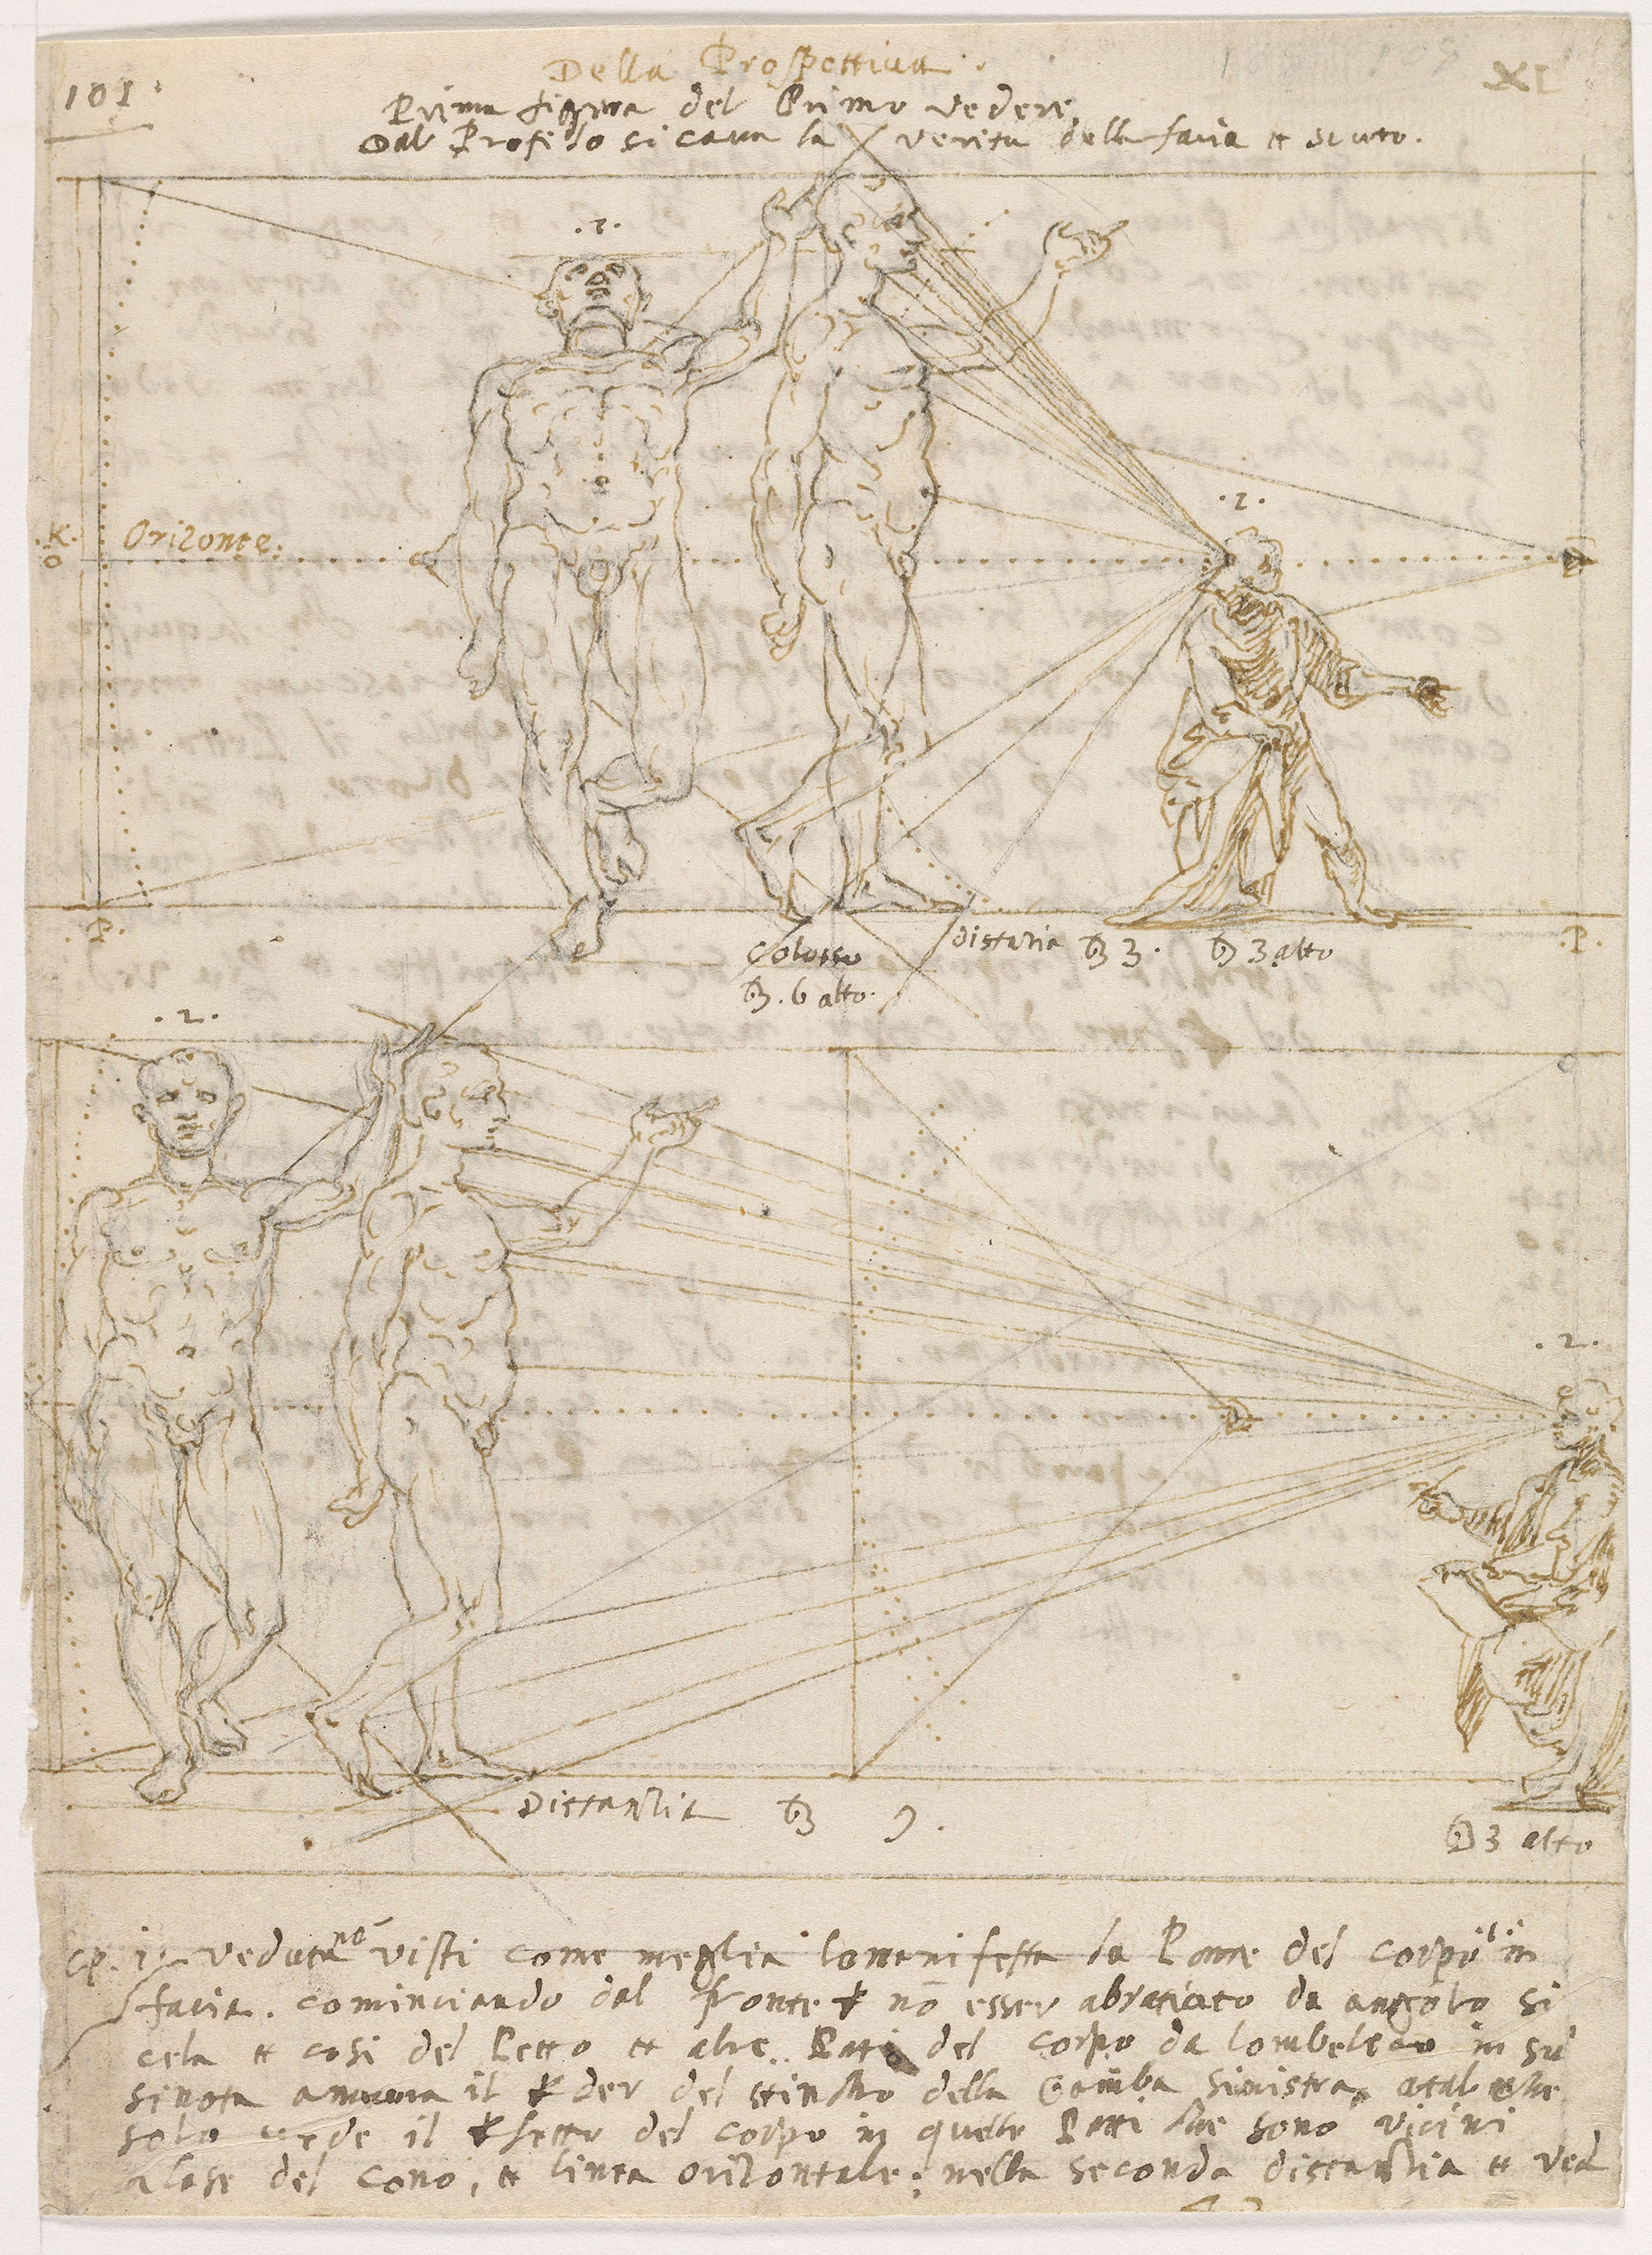 Della Prospettiva
101
XI
Prima figura del Primo vedere
Dal Profilo si caua la verita della facia et scurto.
.1.
.1.
.K.
O
Orizonte
.P.
Colosso
B. 6 alto.
distatia B 3. B 3 alto
.2.
.2.
Distantia B 9.
B 3 alto
cp. i veduta nō visti come meglia lomanifesta la Parte del corpo in
facia. cominciando dal fronte nō esser abratiato da angolo si
cela et cosi del Petto et altre Parti del corpo da lombelico in sù
si nota ancora il der del stincho della Gamba sinistra, atal che
solo vede il schetto del corpo in quelle Parti che sono vicini
alase del cono, et linea orizontale; nella seconda distantia et ved